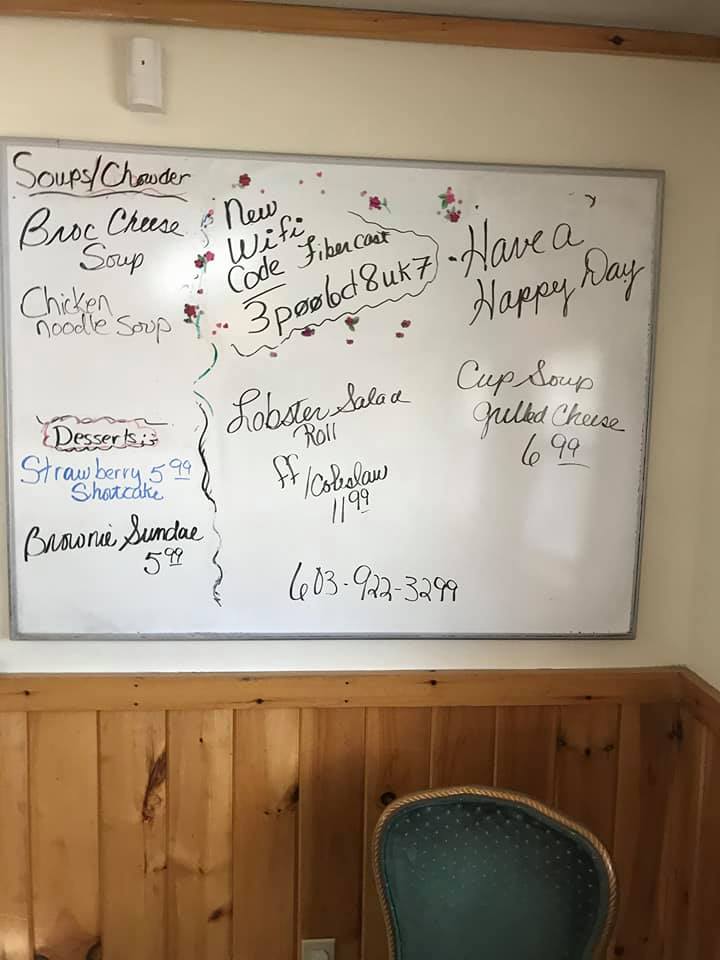 Soups/Chowder
Broc Cheese
Soup
Chicken
noodle Soup
Desserts
Strawberry 5.99
Shortcake
Brownie Sundae
5.99
New
Wifi
Code Fibercast
Lobster Salad
Roll
ff/Coleslaw
11.99
603-922-3299
Have a
Happy Day
Cup Soup
grilled Cheese
6.99